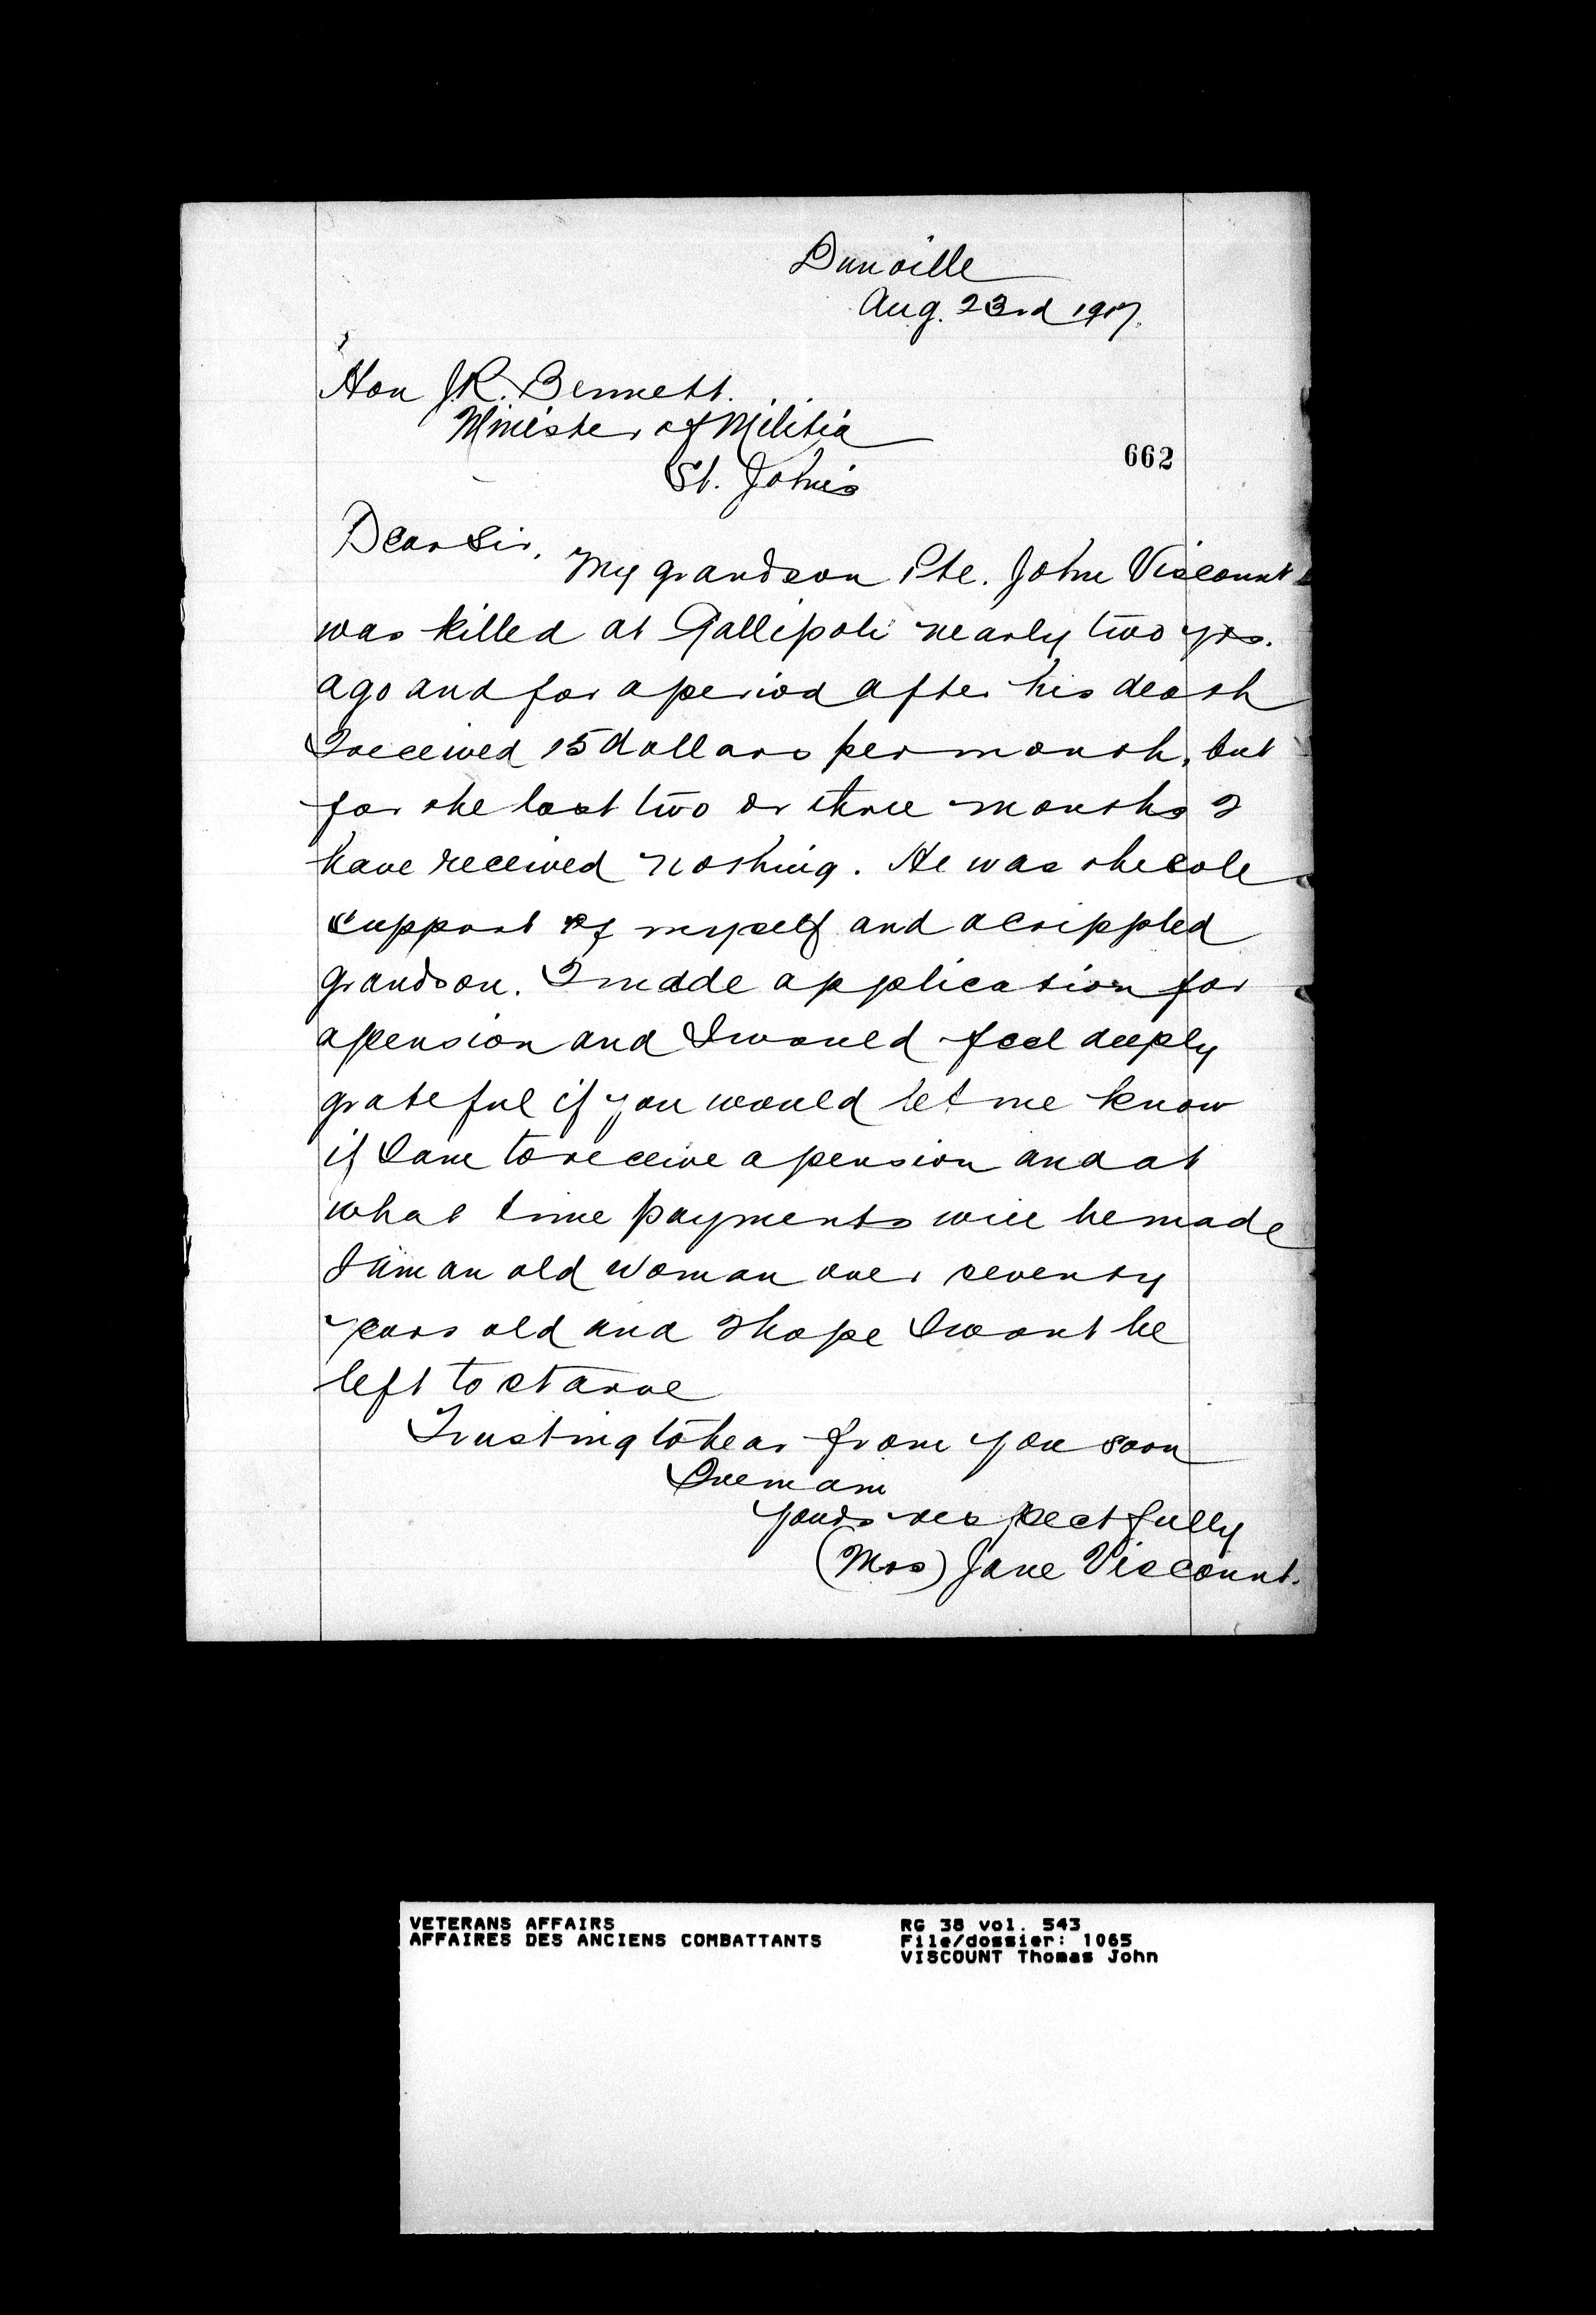 Dunville
Aug. 23rd 1917.
Hon J.R. Bennett.
Minister of Militia
662
St. John's
Dear Sir,
My grandson Pte. John Viscount
was killed at Gallipoli nearly two yrs.
ago and for a period after his death
I received 15 dollars per month, but
for the last two or three months I
have received nothing. He was the sole
support of myself and a crippled
grandson. I made application for
a pension and I would feel deeply
grateful if you would let me know
if I am to receive a pension and at
what time payments will be made
I am an old woman over seventy
years old and I hope I wont be
left to starve
Trusting to hear from you soon
I remain
yours respectfully
(Mrs) Jane Viscount.
VETERANS AFFAIRS
AFFAIRES DES ANCIENS COMBATTANTS
RG 38 vol. 543
File/dossier: 1065
VISCOUNT Thomas John